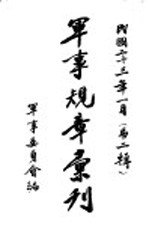 民國二十三年一月(第二輯)
軍事規章彙刊
軍事委員會編